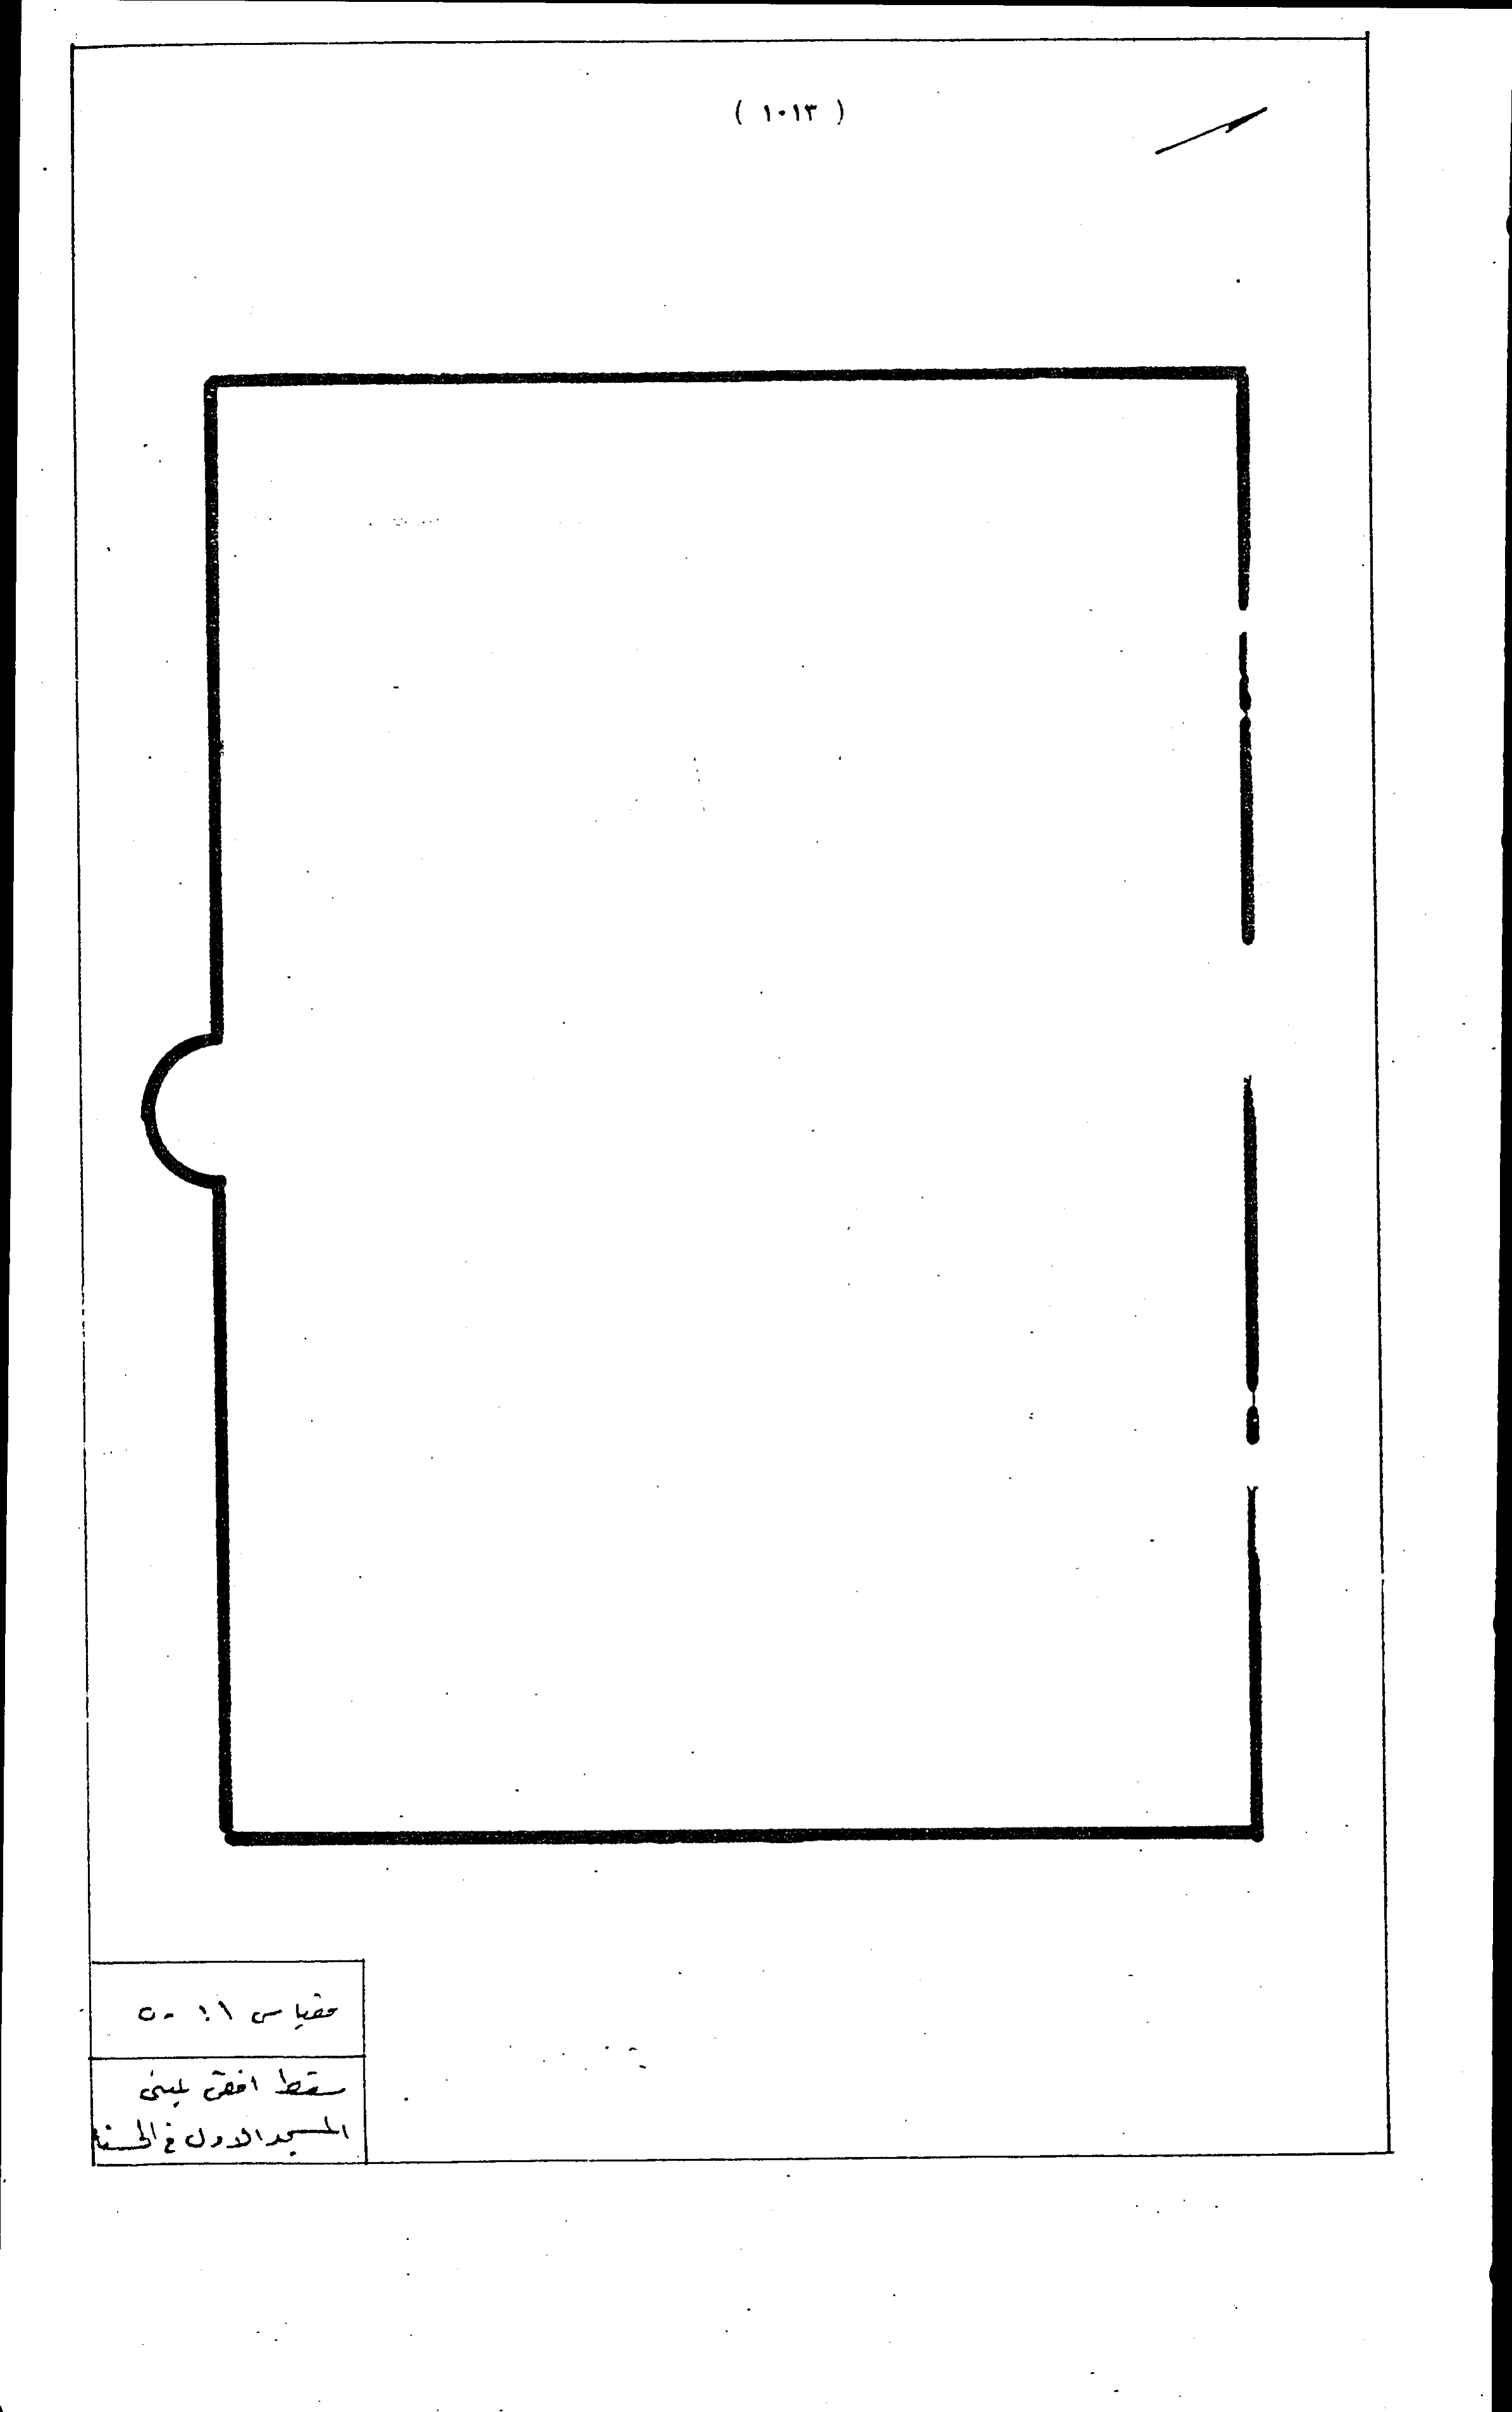 ( ١٠١٣ )
مقياس ١ : ٥٠
مسقط افقى لمبنى
المسجد الاول فى